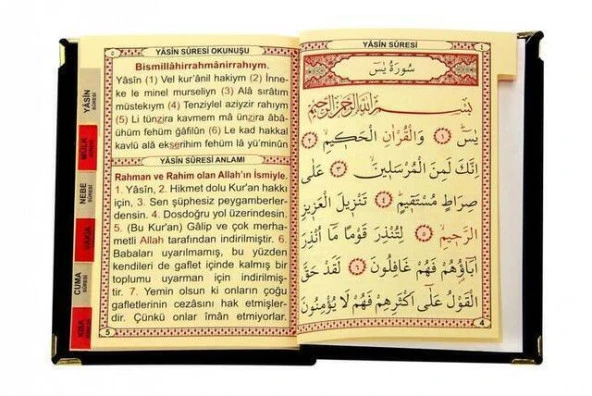 ٤
YÂSÎN SÛRESİ
سُورَةُ يٰسٓ
بِسْمِ اللّٰهِ الرَّحْمٰنِ الرَّحِيمِ
يٰسٓ ١ وَالْقُرْاٰنِ الْحَكِيمِ ٢
اِنَّكَ لَمِنَ الْمُرْسَلِينَ ٣ عَلٰى
صِرَاطٍ مُسْتَقِيمٍ ٤ تَنْزِيلَ الْعَزِيزِ
الرَّحِيمِ ٥ لِتُنْذِرَ قَوْمًا مَا اُنْذِرَ
اٰبَاؤُهُمْ فَهُمْ غَافِلُونَ ٦ لَقَدْ حَقَّ
الْقَوْلُ عَلٰى اَكْثَرِهِمْ فَهُمْ لَا يُؤْمِنُونَ
4
YÂSİN SÛRESİ OKUNUŞU
٥
Bismillâhirrahmânirrahıym.
Yâsîn (1) Vel kur'ânil hakiym (2) İnne-
ke le minel murseliyn (3) Alâ sırâtım
müstekıym (4) Tenziylel aziyzir rahıym
(5) Li tünzira kavmem mâ ünzira âbâ-
ühüm fehüm ğâfilûn (6) Le kad hakkal
kavlü alâ ekserihim fehüm lâ yü'minûn
YÂSİN SÛRESİ ANLAMI
Rahman ve Rahim olan Allah'ın İsmiyle.
1. Yâsîn, 2. Hikmet dolu Kur'an hakkı
için, 3. Sen şüphesiz peygamberler-
densin. 4. Dosdoğru yol üzerindesin.
5. (Bu Kur'an) Gâlip ve çok merha-
metli Allah tarafından indirilmiştir. 6.
Babaları uyarılmamış, bu yüzden
kendileri de gaflet içinde kalmış bir
toplumu uyarman için indirilmiş-
tir. 7. Yemin olsun ki onların çoğu
gafletlerinin cezasını hak etmişler-
dir. Çünkü onlar îman etmiyorlar.
5
YÂSİN
SÛRESİ
MÜLK
NEBE
SÛRESİ
CUMA
SÛRESİ